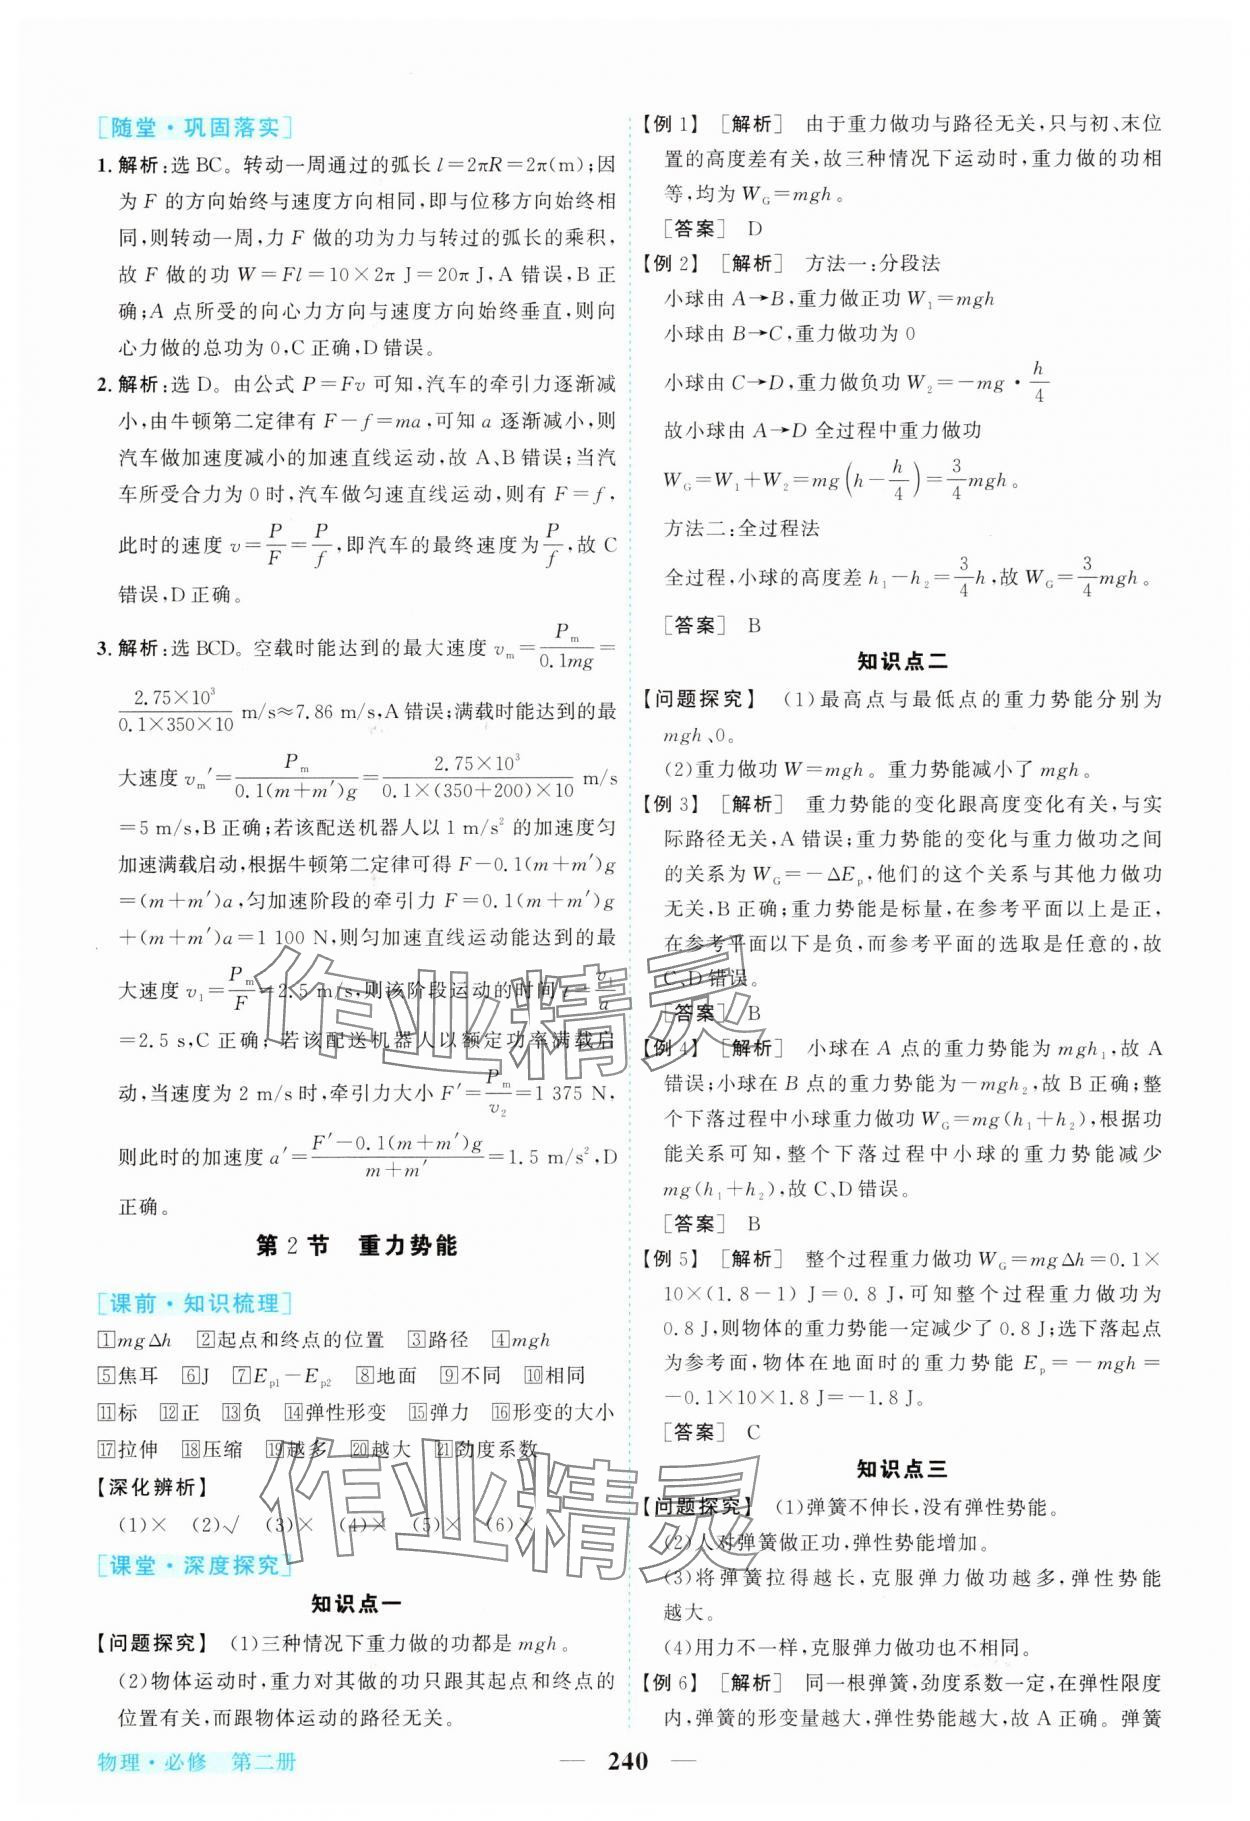 [随堂·巩固落实]
1. 解析:选 BC。转动一周通过的弧长 l=2πR=2π(m);因
为 F 的方向始终与速度方向相同,即与位移方向始终相
同,则转动一周,力 F 做的功为力与转过的弧长的乘积,
故 F 做的功 W=Fl=10×2π J=20π J,A 错误,B 正
确;A 点所受的向心力方向与速度方向始终垂直,则向
心力做的总功为 0,C 正确,D 错误。
2. 解析:选 D。由公式 P=Fv 可知,汽车的牵引力逐渐减
小,由牛顿第二定律有 F-f=ma,可知 a 逐渐减小,则
汽车做加速度减小的加速直线运动,故 A、B 错误;当汽
车所受合力为 0 时,汽车做匀速直线运动,则有 F=f,
此时的速度 v=P/F=P/f,即汽车的最终速度为P/f,故 C
错误,D 正确。
3. 解析:选 BCD。空载时能达到的最大速度 vₘ=Pₘ/(0.1mg)=
(2.75×10³)/(0.1×350×10) m/s≈7.86 m/s,A 错误;满载时能达到的最
大速度 vₘ′=Pₘ/(0.1(m+m′)g)=(2.75×10³)/(0.1×(350+200)×10) m/s
=5 m/s,B 正确;若该配送机器人以 1 m/s² 的加速度匀
加速满载启动,根据牛顿第二定律可得 F-0.1(m+m′)g
=(m+m′)a,匀加速阶段的牵引力 F=0.1(m+m′)g
+(m+m′)a=1 100 N,则匀加速直线运动能达到的最
大速度 v₁=Pₘ/F=2.5 m/s,则该阶段运动的时间 t=v₁/a
=2.5 s,C 正确;若该配送机器人以额定功率满载启
动,当速度为 2 m/s 时,牵引力大小 F′=Pₘ/v₂=1 375 N,
则此时的加速度 a′=(F′-0.1(m+m′)g)/(m+m′)=1.5 m/s²,D
正确。
第 2 节 重力势能
[课前·知识梳理]
1mgΔh 2起点和终点的位置 3路径 4mgh
5焦耳 6J 7Eₚ₁-Eₚ₂ 8地面 9不同 10相同
11标 12正 13负 14弹性形变 15弹力 16形变的大小
17拉伸 18压缩 19越多 20越大 21劲度系数
【深化辨析】
(1)× (2)√ (3)× (4)× (5)× (6)×
[课堂·深度探究]
知识点一
【问题探究】 (1)三种情况下重力做的功都是 mgh。
(2)物体运动时,重力对其做的功只跟其起点和终点的
位置有关,而跟物体运动的路径无关。
物理·必修 第二册
【例 1】 [解析] 由于重力做功与路径无关,只与初、末位
置的高度差有关,故三种情况下运动时,重力做的功相
等,均为 W_G=mgh。
[答案] D
【例 2】 [解析] 方法一:分段法
小球由 A→B,重力做正功 W₁=mgh
小球由 B→C,重力做功为 0
小球由 C→D,重力做负功 W₂=-mg·h/4
故小球由 A→D 全过程中重力做功
W_G=W₁+W₂=mg(h-h/4)=3/4mgh。
方法二:全过程法
全过程,小球的高度差 h₁-h₂=3/4h,故 W_G=3/4mgh。
[答案] B
知识点二
【问题探究】 (1)最高点与最低点的重力势能分别为
mgh、0。
(2)重力做功 W=mgh。重力势能减小了 mgh。
【例 3】 [解析] 重力势能的变化跟高度变化有关,与实
际路径无关,A 错误;重力势能的变化与重力做功之间
的关系为 W_G=-ΔEₚ,他们的这个关系与其他力做功
无关,B 正确;重力势能是标量,在参考平面以上是正,
在参考平面以下是负,而参考平面的选取是任意的,故
C、D 错误。
[答案] B
【例 4】 [解析] 小球在 A 点的重力势能为 mgh₁,故 A
错误;小球在 B 点的重力势能为-mgh₂,故 B 正确;整
个下落过程中小球重力做功 W_G=mg(h₁+h₂),根据功
能关系可知,整个下落过程中小球的重力势能减少
mg(h₁+h₂),故 C、D 错误。
[答案] B
【例 5】 [解析] 整个过程重力做功 W_G=mgΔh=0.1×
10×(1.8-1) J=0.8 J,可知整个过程重力做功为
0.8 J,则物体的重力势能一定减少了 0.8 J;选下落起点
为参考面,物体在地面时的重力势能 Eₚ=-mgh=
-0.1×10×1.8 J=-1.8 J。
[答案] C
知识点三
【问题探究】 (1)弹簧不伸长,没有弹性势能。
(2)人对弹簧做正功,弹性势能增加。
(3)将弹簧拉得越长,克服弹力做功越多,弹性势能
越大。
(4)用力不一样,克服弹力做功也不相同。
【例 6】 [解析] 同一根弹簧,劲度系数一定,在弹性限度
内,弹簧的形变量越大,弹性势能越大,故 A 正确。弹簧
— 240 —
作业精灵
作业精灵